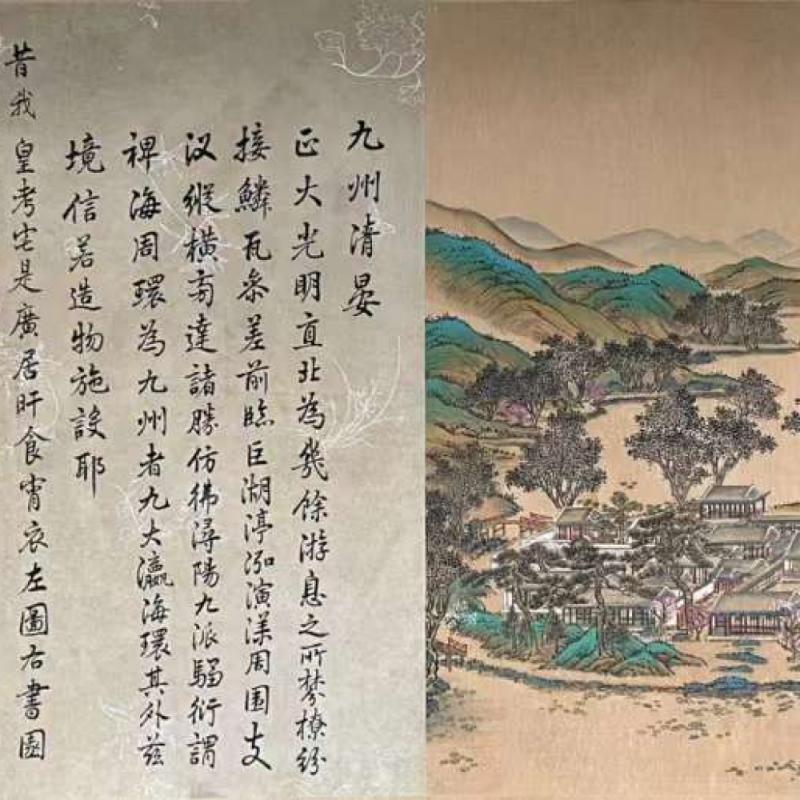 九州清晏
正大光明直北為幾餘游息之所棼橑紛
接鱗瓦參差前臨巨湖渟泓演漾周圍支
汊縱橫旁達諸勝仿彿潯陽九派騶衍謂
裨海周環為九州者九大瀛海環其外茲
境信若造物施設耶
昔我皇考宅是廣居旰食宵衣左圖右書園